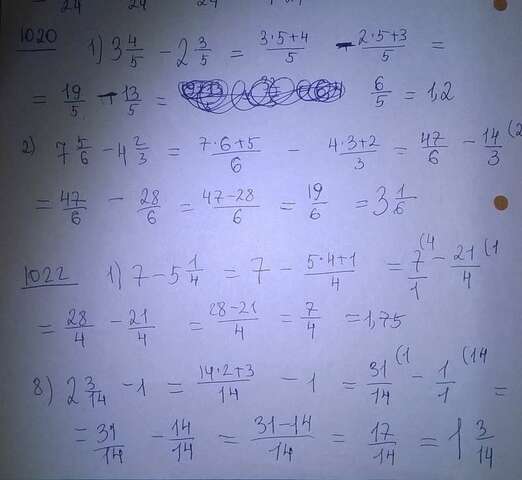 24 24 24
1020 1) 3 4/5 − 2 3/5 = (3·5+4)/5 − (2·5+3)/5 =
= 19/5 − 13/5 = 6/5 = 1,2
2) 7 5/6 − 4 2/3 = (7·6+5)/6 − (4·3+2)/3 = 47/6 − 14/3 (2
= 47/6 − 28/6 = (47−28)/6 = 19/6 = 3 1/6
1022 1) 7 − 5 1/4 = 7 − (5·4+1)/4 = 7/1 (4 − 21/4 (1
= 28/4 − 21/4 = (28−21)/4 = 7/4 = 1,75
8) 2 3/14 − 1 = (14·2+3)/14 − 1 = 31/14 (1 − 1/1 (14 =
= 31/14 − 14/14 = (31−14)/14 = 17/14 = 1 3/14